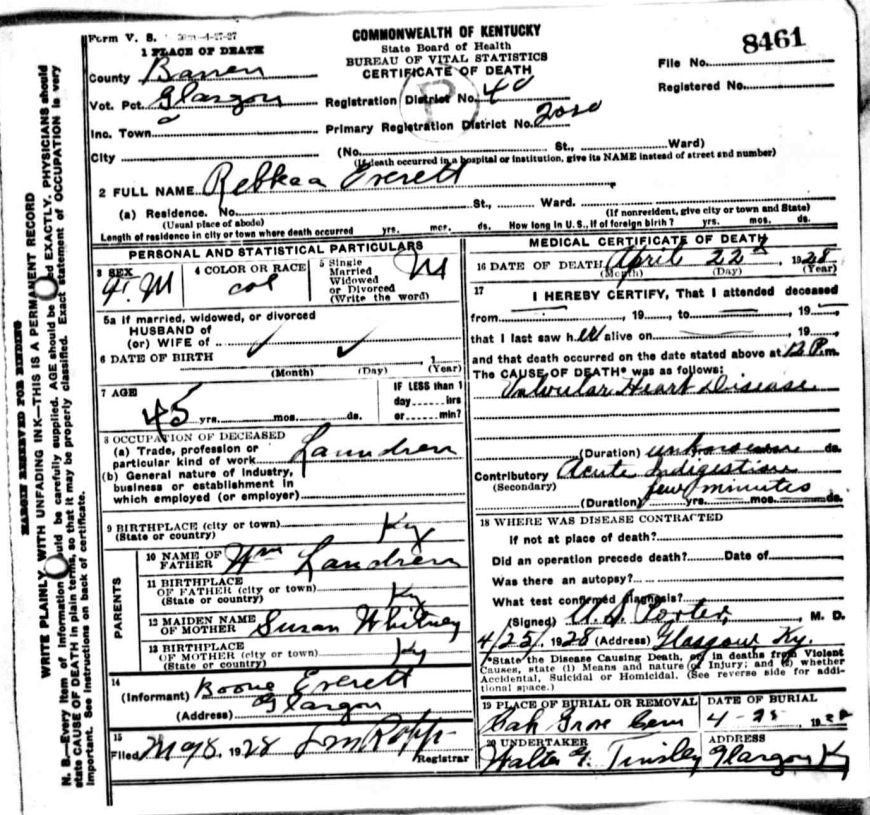 Form V. S.
COMMONWEALTH OF KENTUCKY
State Board of Health
BUREAU OF VITAL STATISTICS
CERTIFICATE OF DEATH
8461
File No.
Registered No.
1 PLACE OF DEATH
County Barren
Vot. Pct. Glasgow
Inc. Town
City
Registration District No. 40
P
Primary Registration District No. 2020
(No. St., Ward)
(If death occurred in a hospital or institution, give its NAME instead of street and number)
2 FULL NAME Rebkaa Everett
(a) Residence. No. St., Ward.
(Usual place of abode)
(If nonresident, give city or town and State)
Length of residence in city or town where death occurred yrs. mos. ds. How long in U.S., if of foreign birth? yrs. mos. ds.
PERSONAL AND STATISTICAL PARTICULARS
3 SEX
F. M
4 COLOR OR RACE
col
5 Single
Married
Widowed
or Divorced
(Write the word)
M
5a if married, widowed, or divorced
HUSBAND of
(or) WIFE of
6 DATE OF BIRTH
(Month) (Day) (Year)
7 AGE
45 yrs. mos. ds.
IF LESS than 1
day hrs
or min?
8 OCCUPATION OF DECEASED
(a) Trade, profession or
particular kind of work
(b) General nature of industry,
business or establishment in
which employed (or employer)
9 BIRTHPLACE (city or town)
(State or country) Ky
PARENTS
10 NAME OF
FATHER Wm
11 BIRTHPLACE
OF FATHER (city or town)
(State or country) Ky
12 MAIDEN NAME
OF MOTHER Susan Whitney
13 BIRTHPLACE
OF MOTHER (city or town)
(State or country) Ky
14
(Informant) Boone Everett
(Address) Glasgow
15
Filed May 8, 1928
Registrar
MEDICAL CERTIFICATE OF DEATH
16 DATE OF DEATH April 22 1928
(Month) (Day) (Year)
17
I HEREBY CERTIFY, That I attended deceased
from 19 to 19
that I last saw her alive on 19
and that death occurred on the date stated above at 12 P.m.
The CAUSE OF DEATH* was as follows:
Valvular Heart Disease
(Duration) unknown ds.
Contributory Acute Indigestion
(Secondary) few minutes
(Duration) yrs. mos. ds.
18 WHERE WAS DISEASE CONTRACTED
If not at place of death?
Did an operation precede death? Date of
Was there an autopsy?
What test confirmed diagnosis?
(Signed) Porter, M. D.
4/25/, 1928 (Address) Glasgow Ky.
*State the Disease Causing Death, or in deaths from Violent
Causes, state (1) Means and nature of Injury; and (2) whether
Accidental, Suicidal or Homicidal. (See reverse side for addi-
tional space.)
19 PLACE OF BURIAL OR REMOVAL
Oak Grove Cem
DATE OF BURIAL
4-25 1928
20 UNDERTAKER
Walter Tinsley
ADDRESS
Glasgow Ky
MARGIN RESERVED FOR BINDING
WRITE PLAINLY, WITH UNFADING INK—THIS IS A PERMANENT RECORD
N. B.—Every item of information should be carefully supplied. AGE should be stated EXACTLY. PHYSICIANS should
state CAUSE OF DEATH in plain terms, so that it may be properly classified. Exact statement of OCCUPATION is very
important. See instructions on back of certificate.